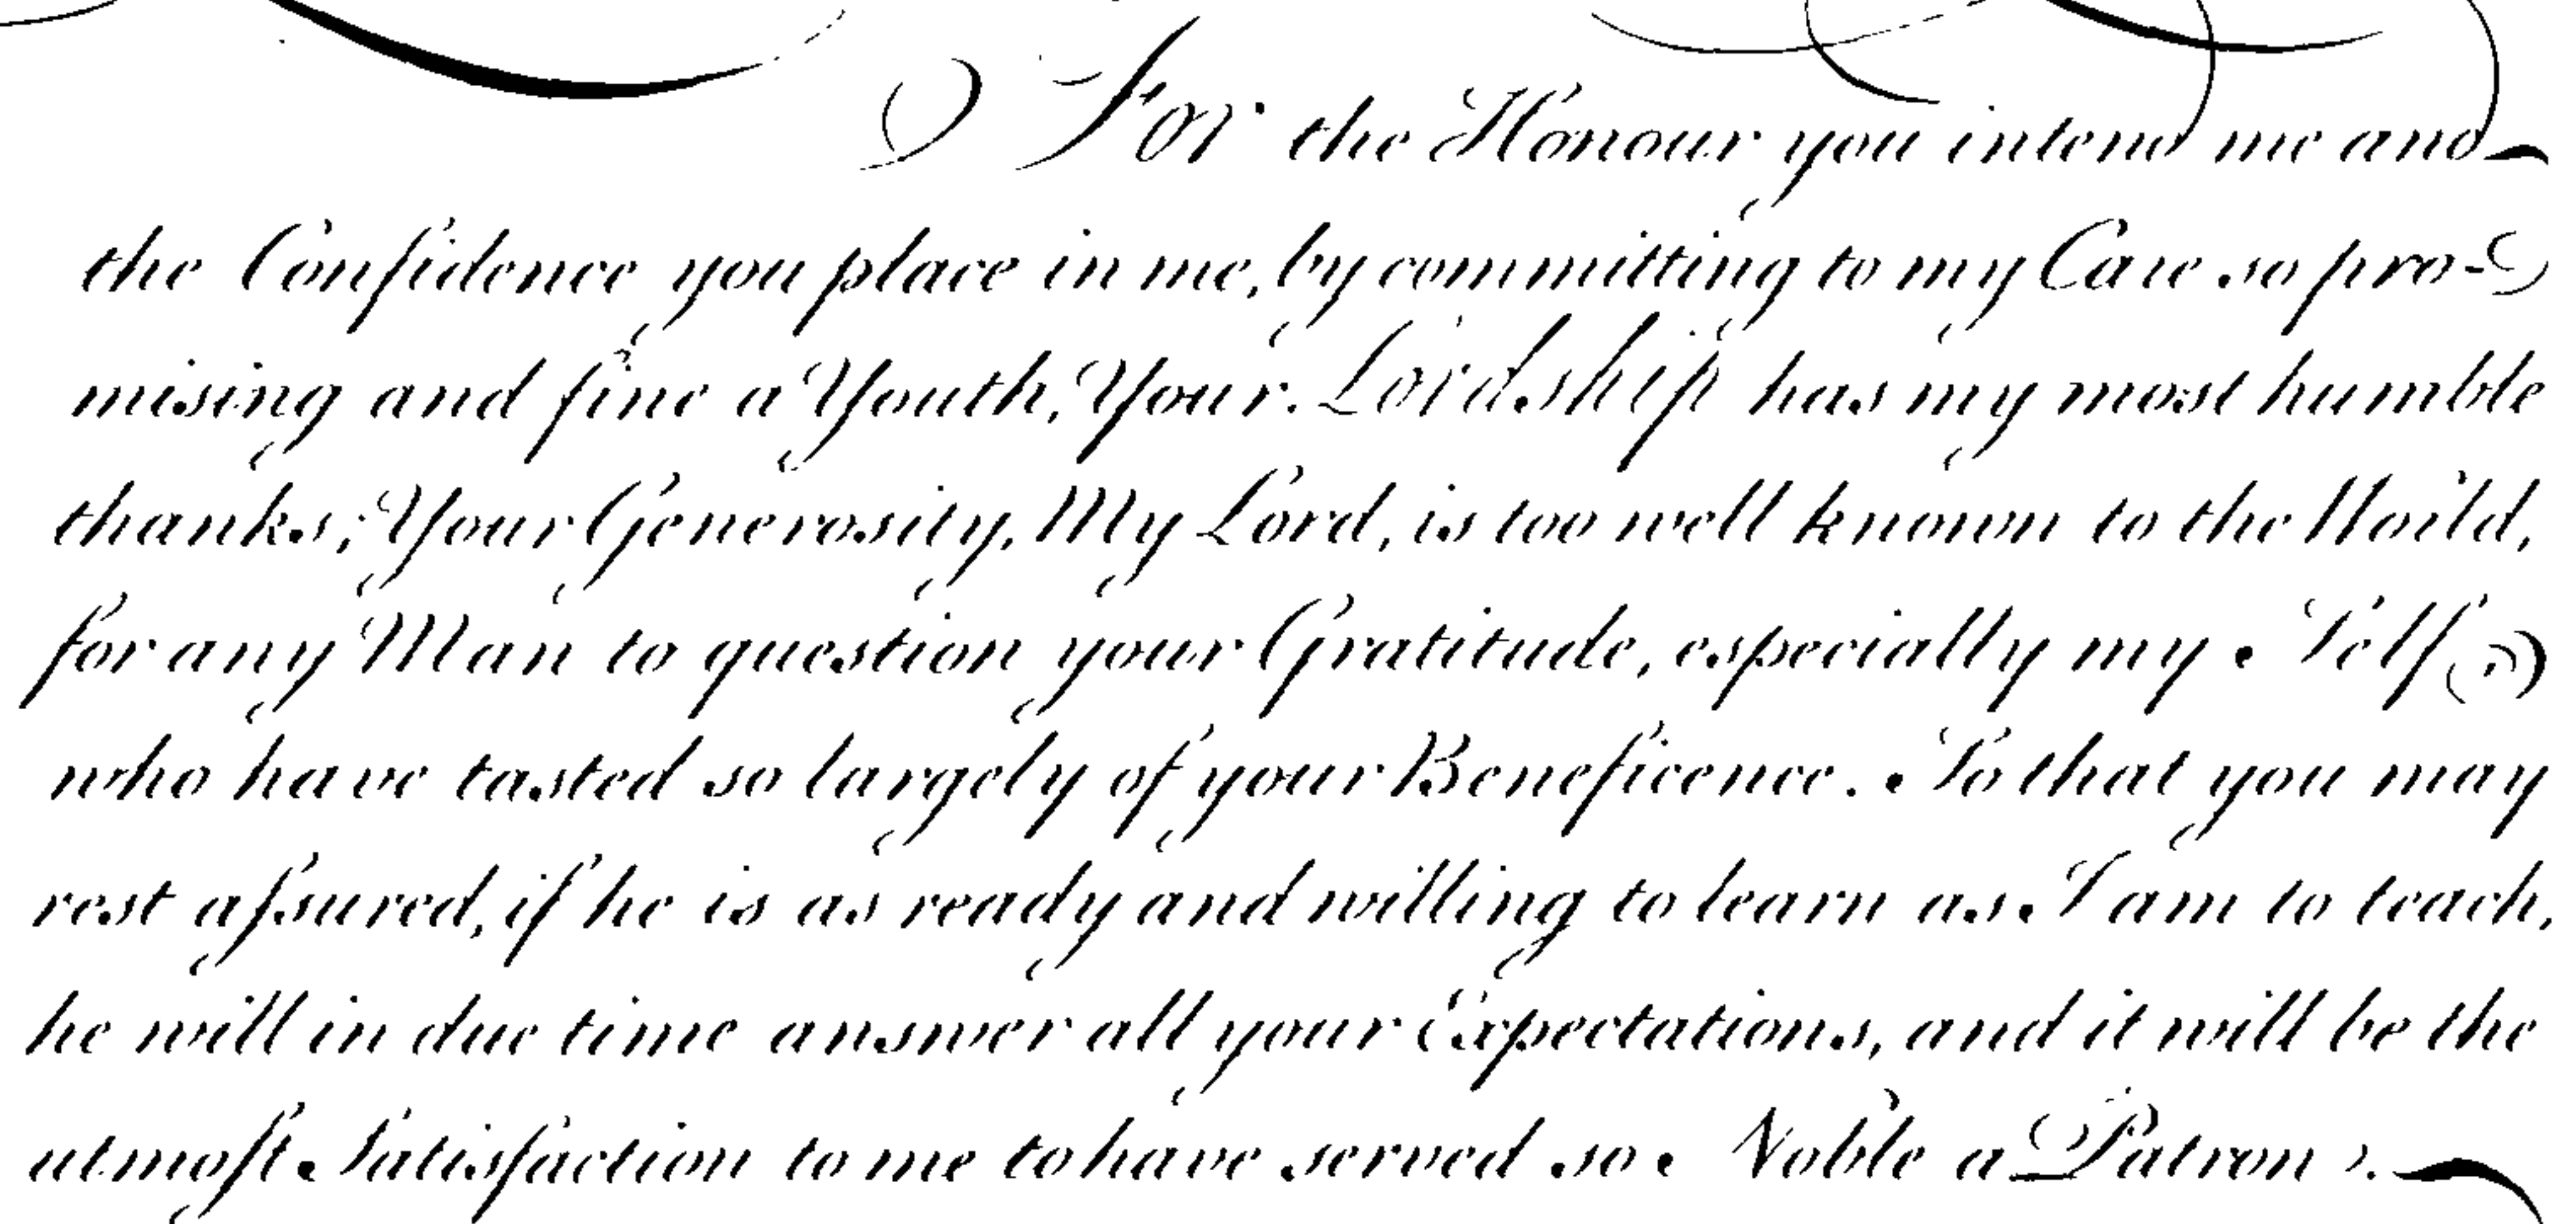 For the Honour you intend me and
the Confidence you place in me, by committing to my Care so pro-
mising and fine a Youth, Your Lordship has my most humble
thanks; Your Generosity, My Lord, is too well known to the World,
for any Man to question your Gratitude, especially my Self
who have tasted so largely of your Beneficence. So that you may
rest aſsured, if he is as ready and willing to learn as I am to teach,
he will in due time answer all your Expectations, and it will be the
utmoſt Satisfaction to me to have served so Noble a Patron.